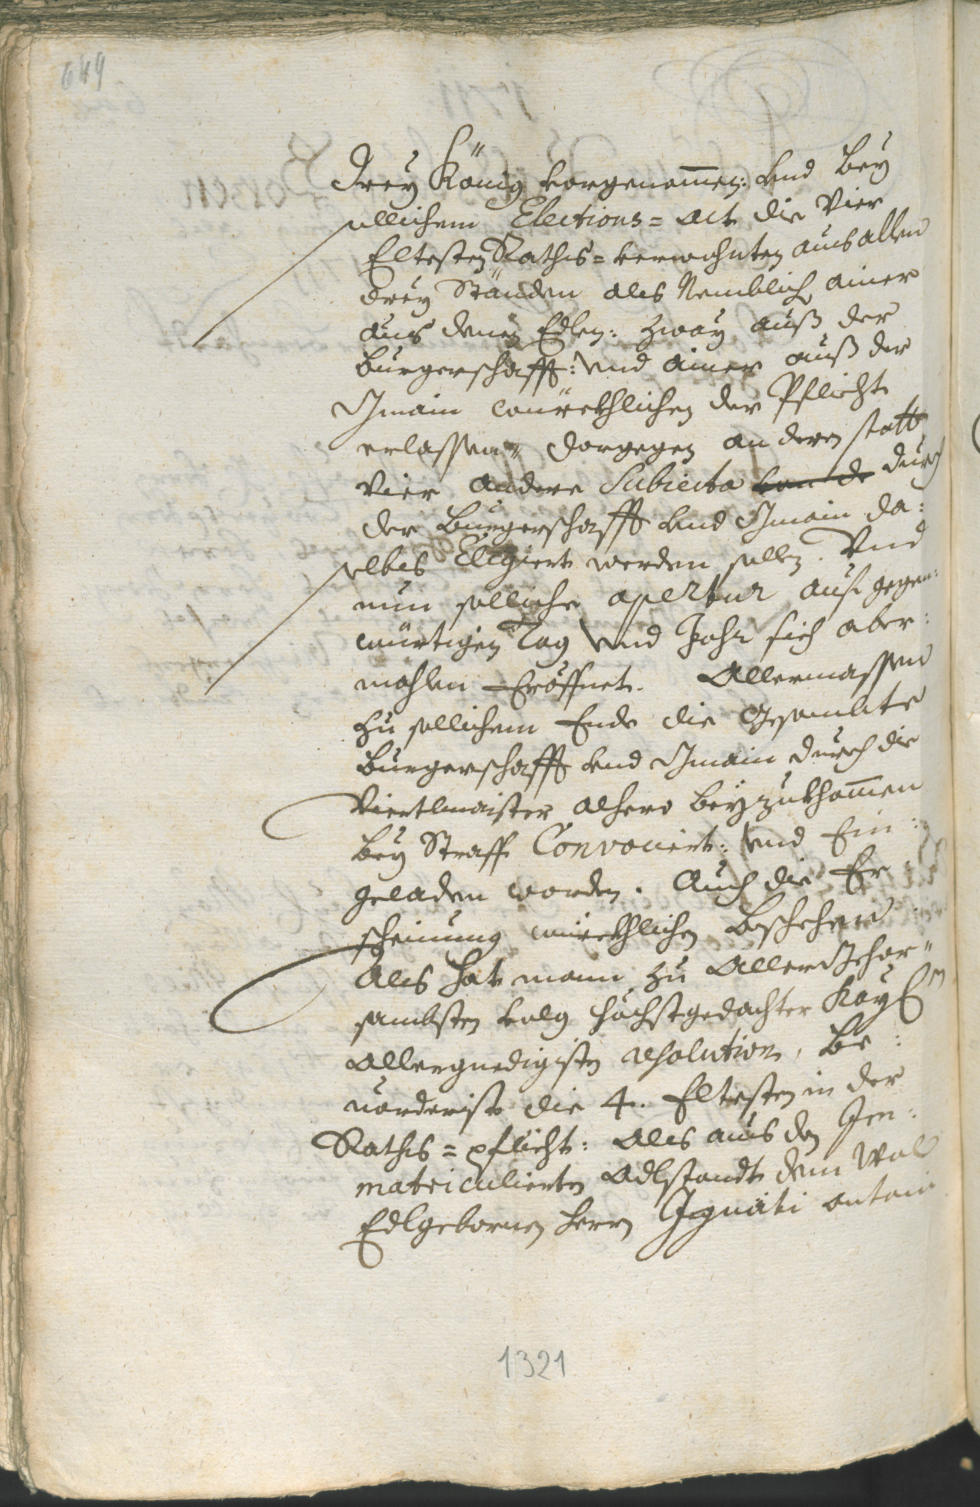 649
Drey König vorgenomen: vnd bey
sollichem Elections= Act die Vier
Eltesten Raths= verwohnten aus allen
drey Ständen als Nemblich ainer
aus denen Edlen: zway auß der
Burgerschafft: vnd ainer auß der
Gmain würckhlichen der Pflicht
erlassen, dargegen an deren statt
Vier andere Subiecta durch
der Burgerschafft vnd Gmain da:
selbs Eligiert werden sollen. Vnd
nun solliche apertur auf gegen:
würtigen Tag vnd Jahr sich aber:
mahlen Eröffnet. Allermassen
zu sollichem Ende die Gesambte
Burgerschafft vnd Gmain durch die
Viertlmaister alhero beyzukhomen
bey Straff Convociert: vnd Ein:
geladen worden. Auch die Er:
scheinung würckhlichen beschehen:
Als hat mann zu Allerdgehor"
sambsten volg höchstgedachter Kay
Allergnedigisten resolution, Be:
uorderist die 4. Eltesten in der
Raths= pflicht: als aus den Im:
matriculierten Adlstandt dem Wol
Edlgebornen Herrn Ignäti Antoni
1321